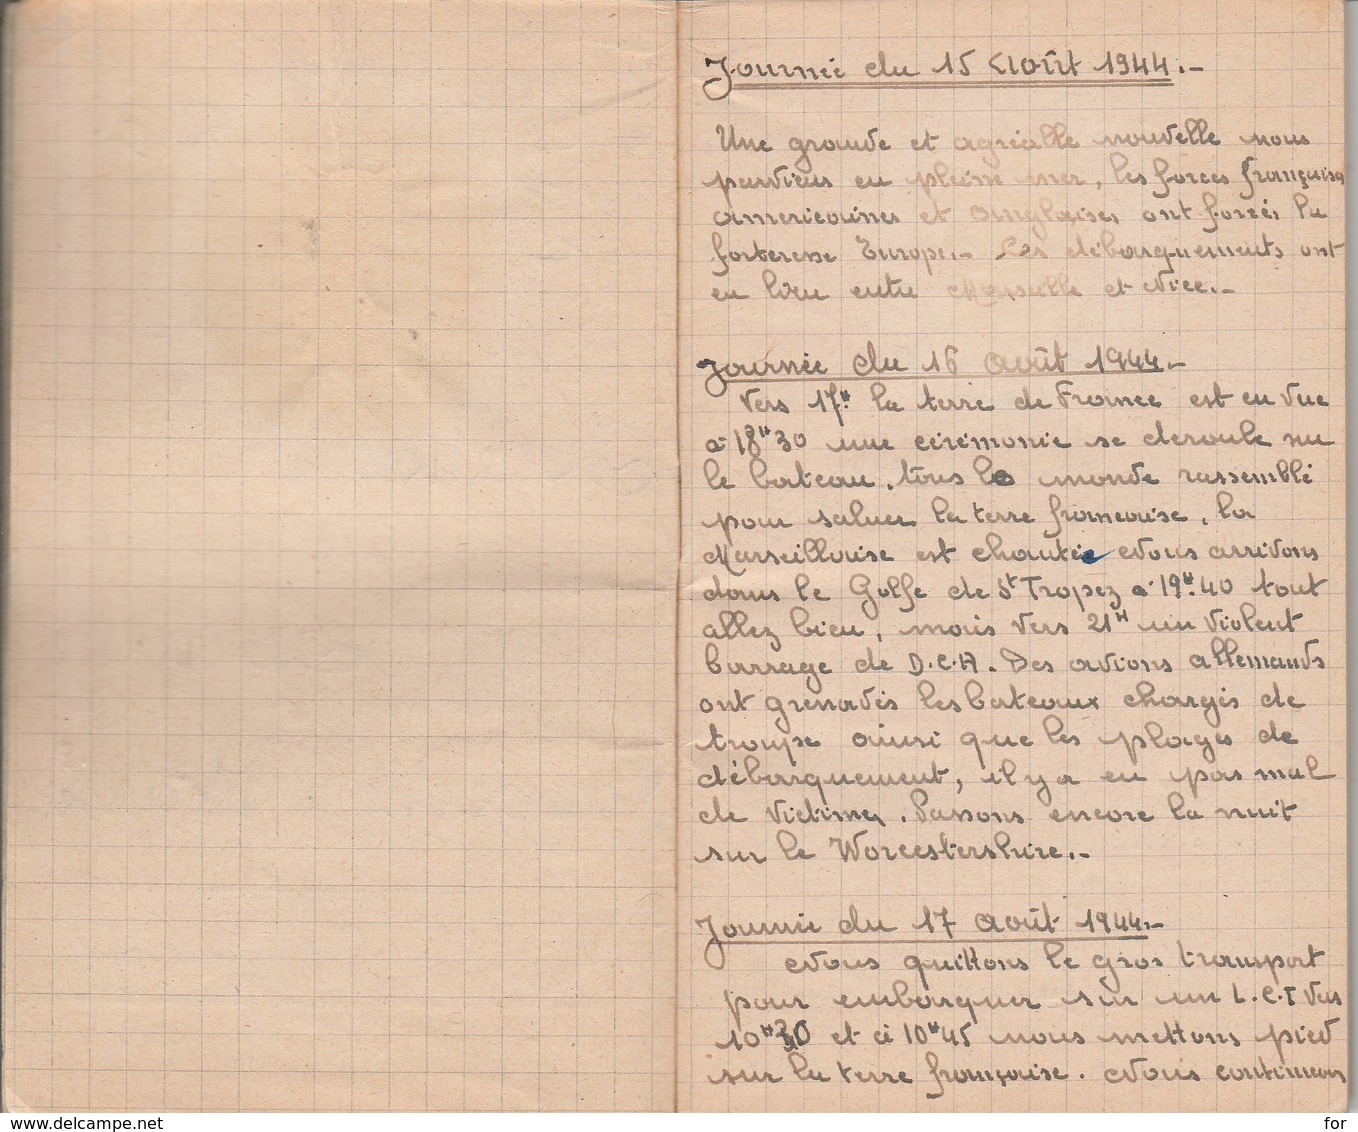 Journée du 15 Août 1944.-
Une grande et agréable nouvelle nous
parviens en pleine mer, les forces françaises
americaines et anglaises ont forcés la
forteresse Europe.- Les débarquements ont
eu lieu entre Marseille et Nice.-
Journée du 16 août 1944.-
Vers 17H. la terre de France est en vue
a 18H30 une cérémonie se deroule sur
le bateau, tous le monde rassemblé
pour saluer la terre francaise, la
Marseillaise est chantée Nous arrivons
dans le Golfe de St Tropez a 19H.40 tout
allez bien, mais vers 21H un violent
barrage de D.C.A. Des avions allemands
ont grenadés les bateaux chargés de
troupe ainsi que les plages de
débarquement, il y a eu pas mal
de victimes. Passons encore la nuit
sur le Worcestershire.-
Journée du 17 août 1944.-
Nous quittons le gros transport
pour embarquer sur un L.C.T vers
10H30 et à 10H45 nous mettons pied
sur la terre française. Nous continuons
www.delcampe.net
for